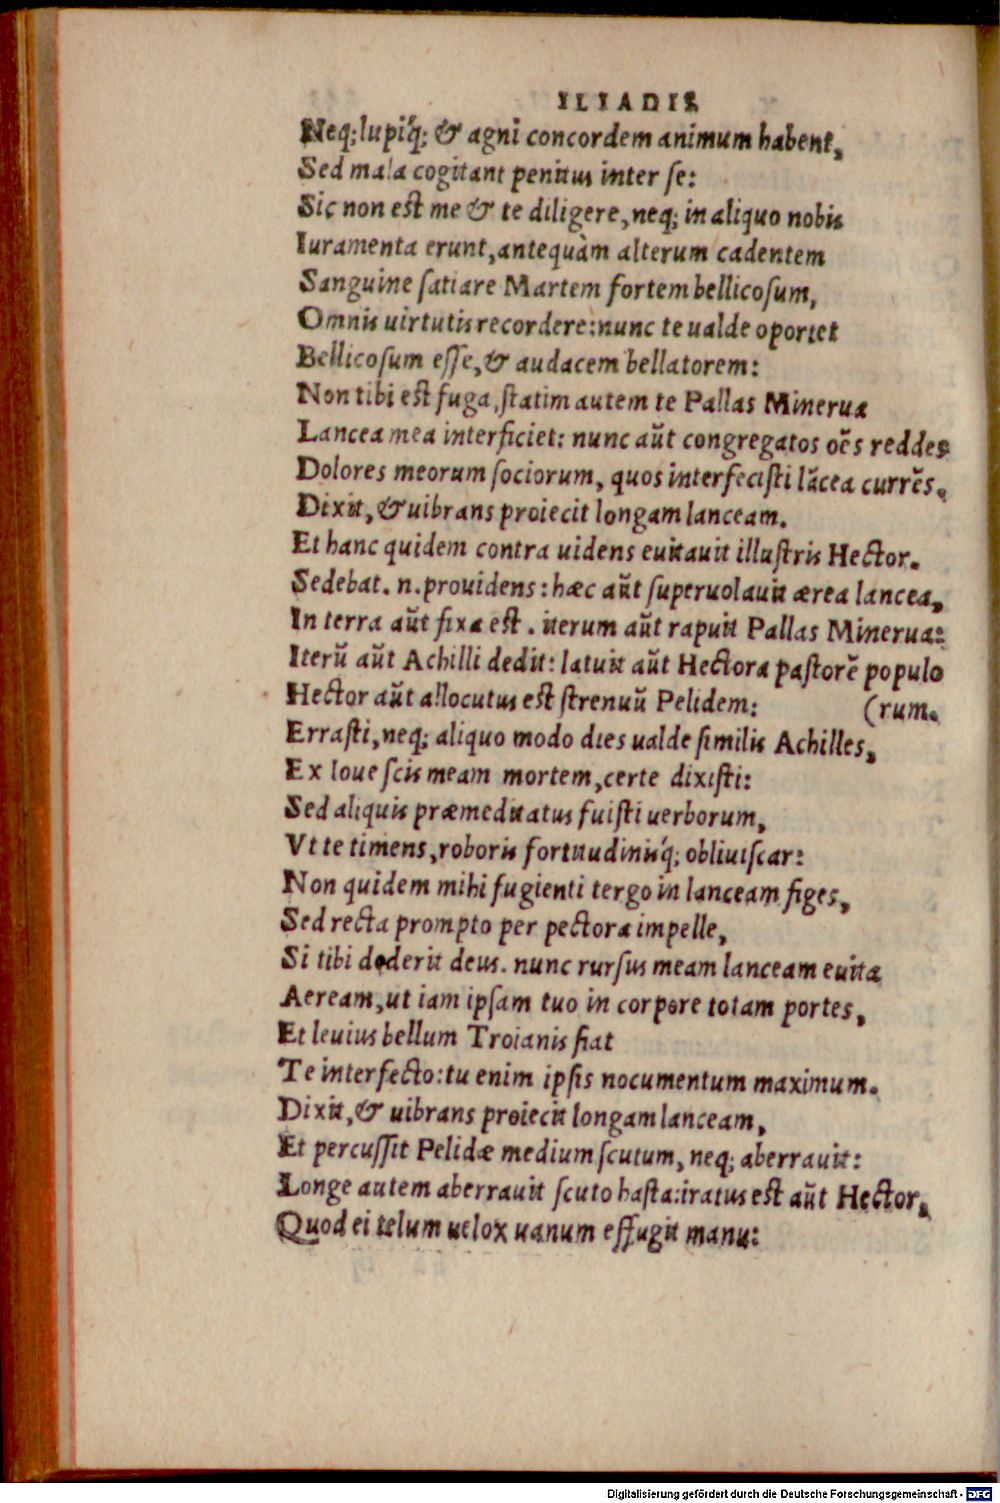 ILIADIS
Neq; lupiq́; & agni concordem animum habent,
Sed mala cogitant penitus inter se:
Sic non est me & te diligere, neq; in aliquo nobis
Iuramenta erunt, antequàm alterum cadentem
Sanguine satiare Martem fortem bellicosum,
Omnis uirtutis recordere: nunc te ualde oportet
Bellicosum esse, & audacem bellatorem:
Non tibi est fuga, statim autem te Pallas Minerua
Lancea mea interficiet: nunc aũt congregatos oẽs reddes
Dolores meorum sociorum, quos interfecisti lãcea currẽs.
Dixit, & uibrans proiecit longam lanceam.
Et hanc quidem contra uidens euitauit illustris Hector.
Sedebat. n. prouidens: hæc aũt superuolauit ærea lancea,
In terra aũt fixa est. iterum aũt rapuit Pallas Minerua:
Iterũ aũt Achilli dedit: latuit aũt Hectora pastorẽ populo
Hector aũt allocutus est strenuũ Pelidem: (rum.
Errasti, neq; aliquo modo dies ualde similis Achilles,
Ex Ioue scis meam mortem, certe dixisti:
Sed aliquis præmeditatus fuisti uerborum,
Vt te timens, roboris fortitudinisq́; obliuiscar:
Non quidem mihi fugienti tergo in lanceam figes,
Sed recta prompto per pectora impelle,
Si tibi dederit deus. nunc rursus meam lanceam euita
Aeream, ut iam ipsam tuo in corpore totam portes,
Et leuius bellum Troianis fiat
Te interfecto: tu enim ipsis nocumentum maximum.
Dixit, & uibrans proiecit longam lanceam,
Et percussit Pelidæ medium scutum, neq; aberrauit:
Longe autem aberrauit scuto hasta: iratus est aũt Hector,
Quod ei telum uelox uanum effugit manu:
Digitalisierung gefördert durch die Deutsche Forschungsgemeinschaft - DFG